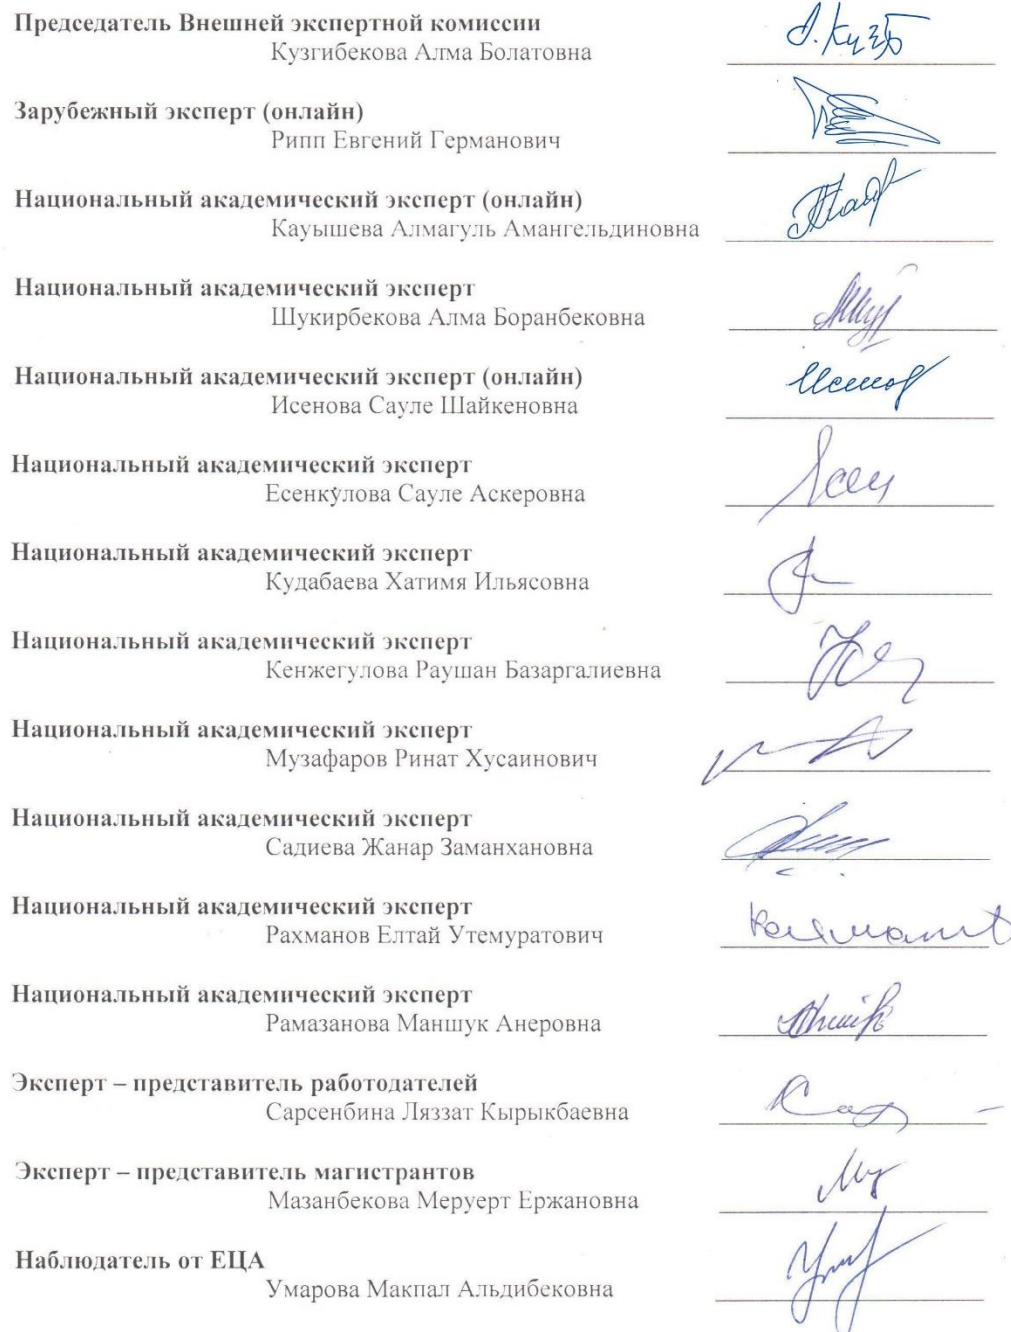 Председатель Внешней экспертной комиссии
Кузгибекова Алма Болатовна
Зарубежный эксперт (онлайн)
Рипп Евгений Германович
Национальный академический эксперт (онлайн)
Кауышева Алмагуль Амангельдиновна
Национальный академический эксперт
Шукирбекова Алма Боранбековна
Национальный академический эксперт (онлайн)
Исенова Сауле Шайкеновна
Национальный академический эксперт
Есенкулова Сауле Аскеровна
Национальный академический эксперт
Кудабаева Хатимя Ильясовна
Национальный академический эксперт
Кенжегулова Раушан Базаргалиевна
Национальный академический эксперт
Музафаров Ринат Хусаинович
Национальный академический эксперт
Садиева Жанар Заманхановна
Национальный академический эксперт
Рахманов Елтай Утемуратович
Национальный академический эксперт
Рамазанова Маншук Анеровна
Эксперт – представитель работодателей
Сарсенбина Ляззат Кырыкбаевна
Эксперт – представитель магистрантов
Мазанбекова Меруерт Ержановна
Наблюдатель от ЕЦА
Умарова Макпал Альдибековна